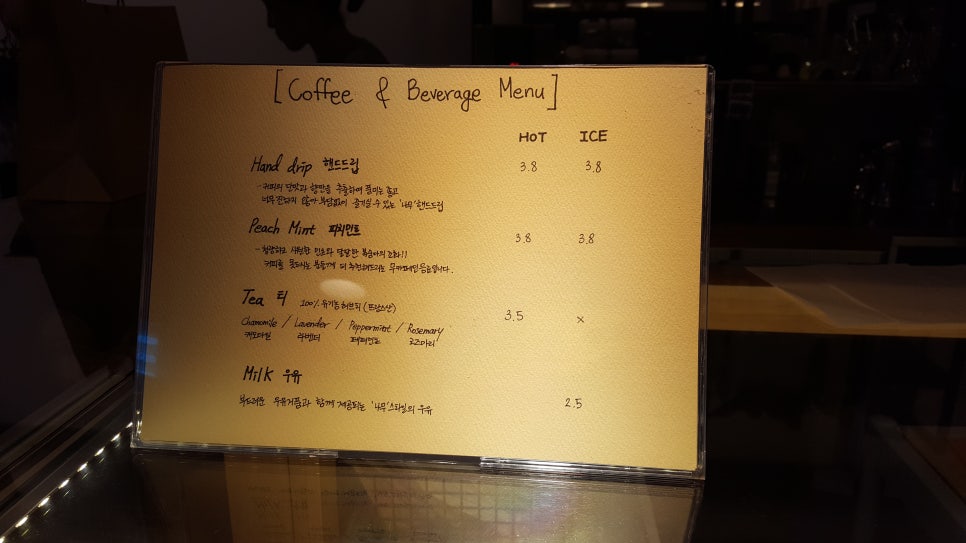 [Coffee & Beverage Menu]
HOT ICE
Hand drip 핸드드립 3.8 3.8
- 커피의 단맛과 향만을 추출하여 풍미는 좋고
너무 진하지 않아 부담없이 즐기실 수 있는 '나무' 핸드드립
Peach Mint 피치민트 3.8 3.8
- 청량하고 시원한 민트와 달달한 복숭아의 조화!!
커피를 못드시는 분들께 더 추천해드리는 무카페인음료입니다.
Tea 티 100% 유기농 허브티 (프랑스산) 3.5 x
Chamomile / Lavender / Peppermint / Rosemary
캐모마일 라벤더 페퍼민트 로즈마리
Milk 우유
부드러운 우유거품과 함께 제공되는 '나무'스타일의 우유 2.5